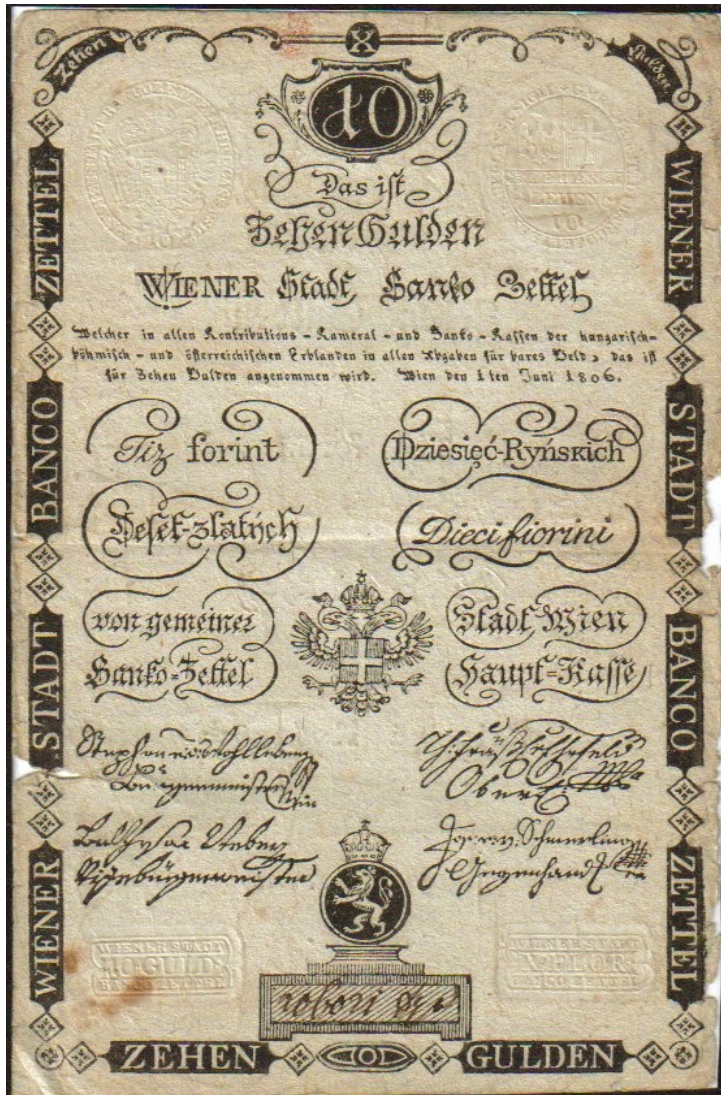 Zehen
X
Gulden
10
Das ist
Zehen Gulden
WIENER Stadt Banko Zettel
Welcher in allen Kontributions - Kameral - und Banko - Kassen der hungarisch-
böhmisch - und österreichischen Erblanden in allen Abgaben für bares Geld, das ist
für Zehen Gulden angenommen wird. Wien den 1ten Juni 1806.
Tiz forint
Dziesięć-Ryńskich
Deset-zlatých
Dieci fiorini
von gemeiner
Stadt Wien
Banko-Zettel
Haupt-Kasse
Stephan
Bürgermeister
Ober
Vizebürgermeister
Schmerling
Gegenhand
WIENER STADT BANCO ZETTEL
WIENER STADT BANCO ZETTEL
WIENER STADT
10 GULD
BANCO ZETTEL
WIENER STADT
X FLOR
BANCO ZETTEL
ZEHEN 10 GULDEN